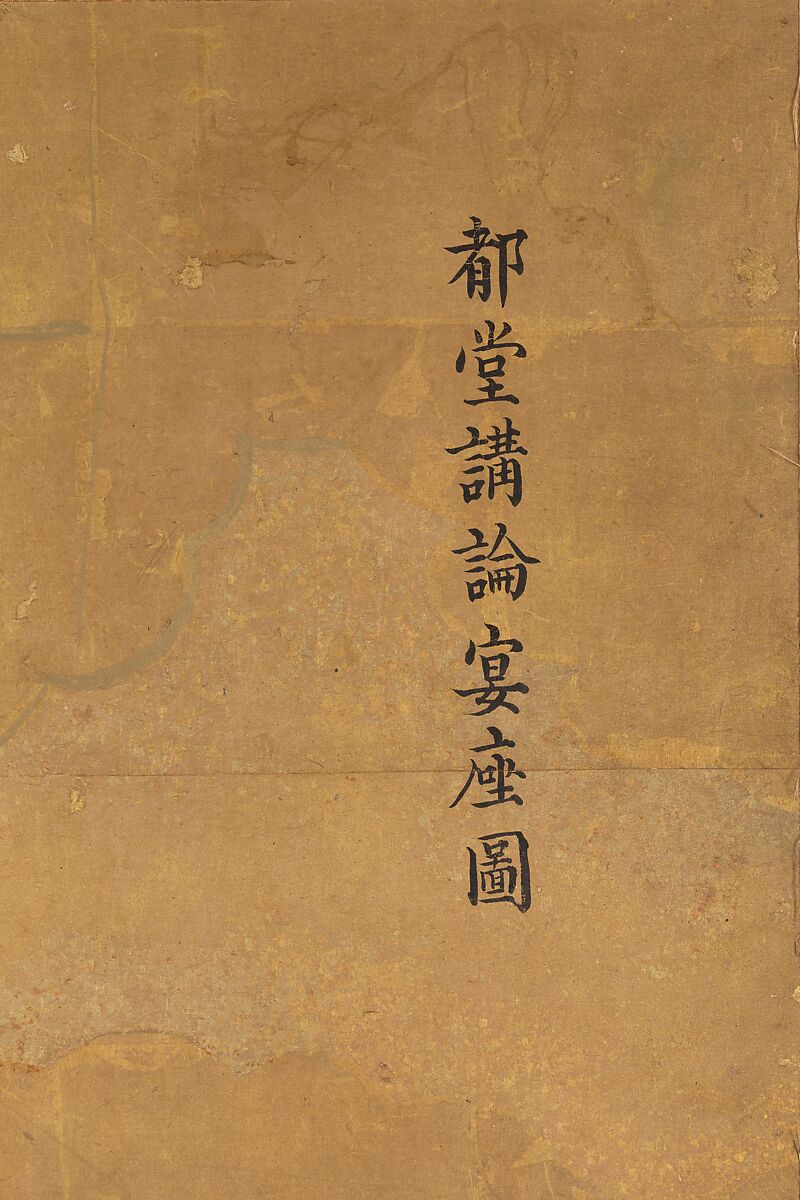 都堂講論宴座圖